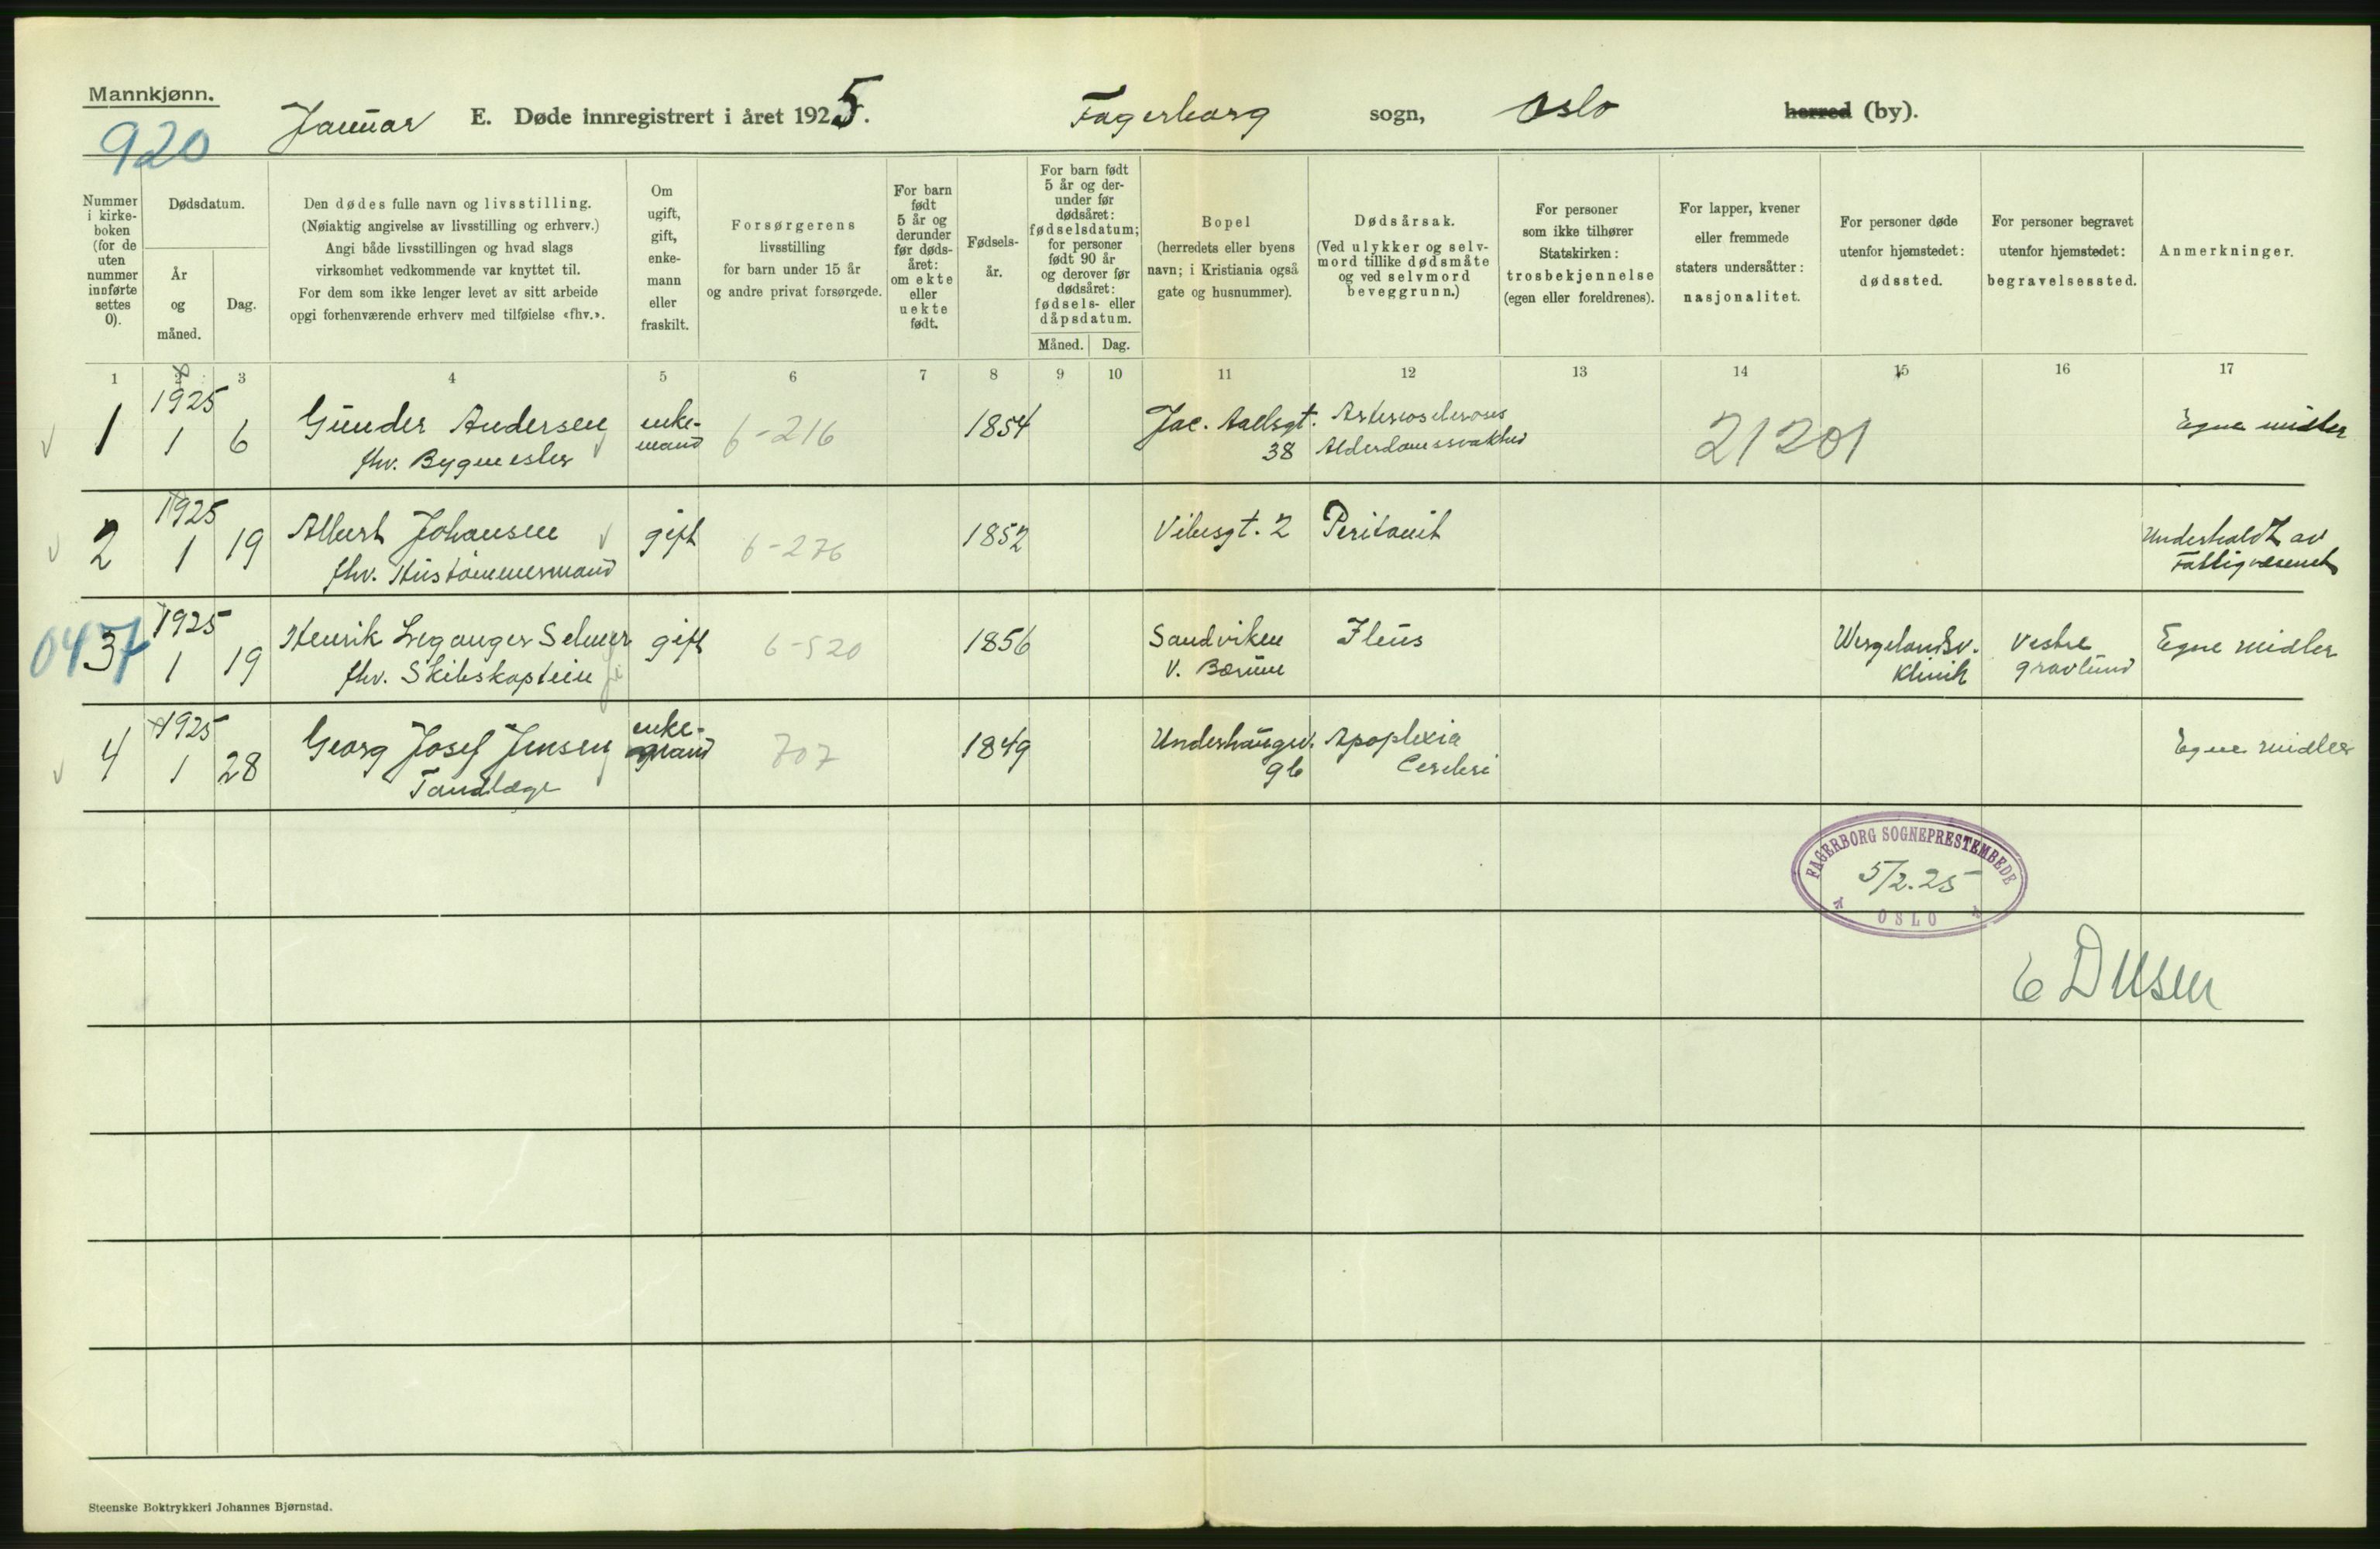 Mannkjønn.
920
Januar E. Døde innregistrert i året 1925. Fagerborg sogn, Oslo herred (by).
Nummer i kirke-boken (for de uten nummer innførte settes 0).
Dødsdatum.
År og måned.
Dag.
Den dødes fulle navn og livsstilling.
(Nøiaktig angivelse av livsstilling og erhverv.)
Angi både livsstillingen og hvad slags
virksomhet vedkommende var knyttet til.
For dem som ikke lenger levet av sitt arbeide
opgi forhenværende erhverv med tilføielse «fhv.».
Om ugift, gift, enke-mann eller fraskilt.
Forsørgerens
livsstilling
for barn under 15 år
og andre privat forsørgede.
For barn født 5 år og derunder før døds-året: om ekte eller uekte født.
Fødsels-år.
For barn født 5 år og der-under før dødsåret: fødselsdatum; for personer født 90 år og derover før dødsåret: fødsels- eller dåpsdatum.
Måned. Dag.
Bopel
(herredets eller byens
navn; i Kristiania også
gate og husnummer).
Dødsårsak.
(Ved ulykker og selv-
mord tillike dødsmåte
og ved selvmord
beveggrunn.)
For personer
som ikke tilhører
Statskirken:
trosbekjennelse
(egen eller foreldrenes).
For lapper, kvener
eller fremmede
staters undersåtter:
nasjonalitet.
For personer døde
utenfor hjemstedet:
dødssted.
For personer begravet
utenfor hjemstedet:
begravelsessted.
Anmerkninger.
1 2 3 4 5 6 7 8 9 10 11 12 13 14 15 16 17
1 1925 1 6 Gunder Andersen enke-mand 6-216 1854 Jac. Aallsgt. 38 Arteriosclerosis 21201 Egne midler
fhv. Bygmester Alderdomssvakhed
2 1925 1 19 Albert Johansen gift 6-276 1852 Vibesgt. 2 Peritonit Underholdt av
fhv. Hustømmermand Fattigvæsenet
0437
3 1925 1 19 Henrik Leganger Selmer gift 6-520 1856 Sandviken Ileus Wergelandsv. Vestre Egne midler
fhv. Skibskaptein V. Bærum Klinik gravlund
4 1925 1 28 Georg Josef Jensen enke-mand 707 1849 Underhaugsv. Apoplexia Egne midler
Tandlæge 9b Cerebri
FAGERBORG SOGNEPRESTEMBEDE
5/2.25
OSLO
Steenske Boktrykkeri Johannes Bjørnstad.